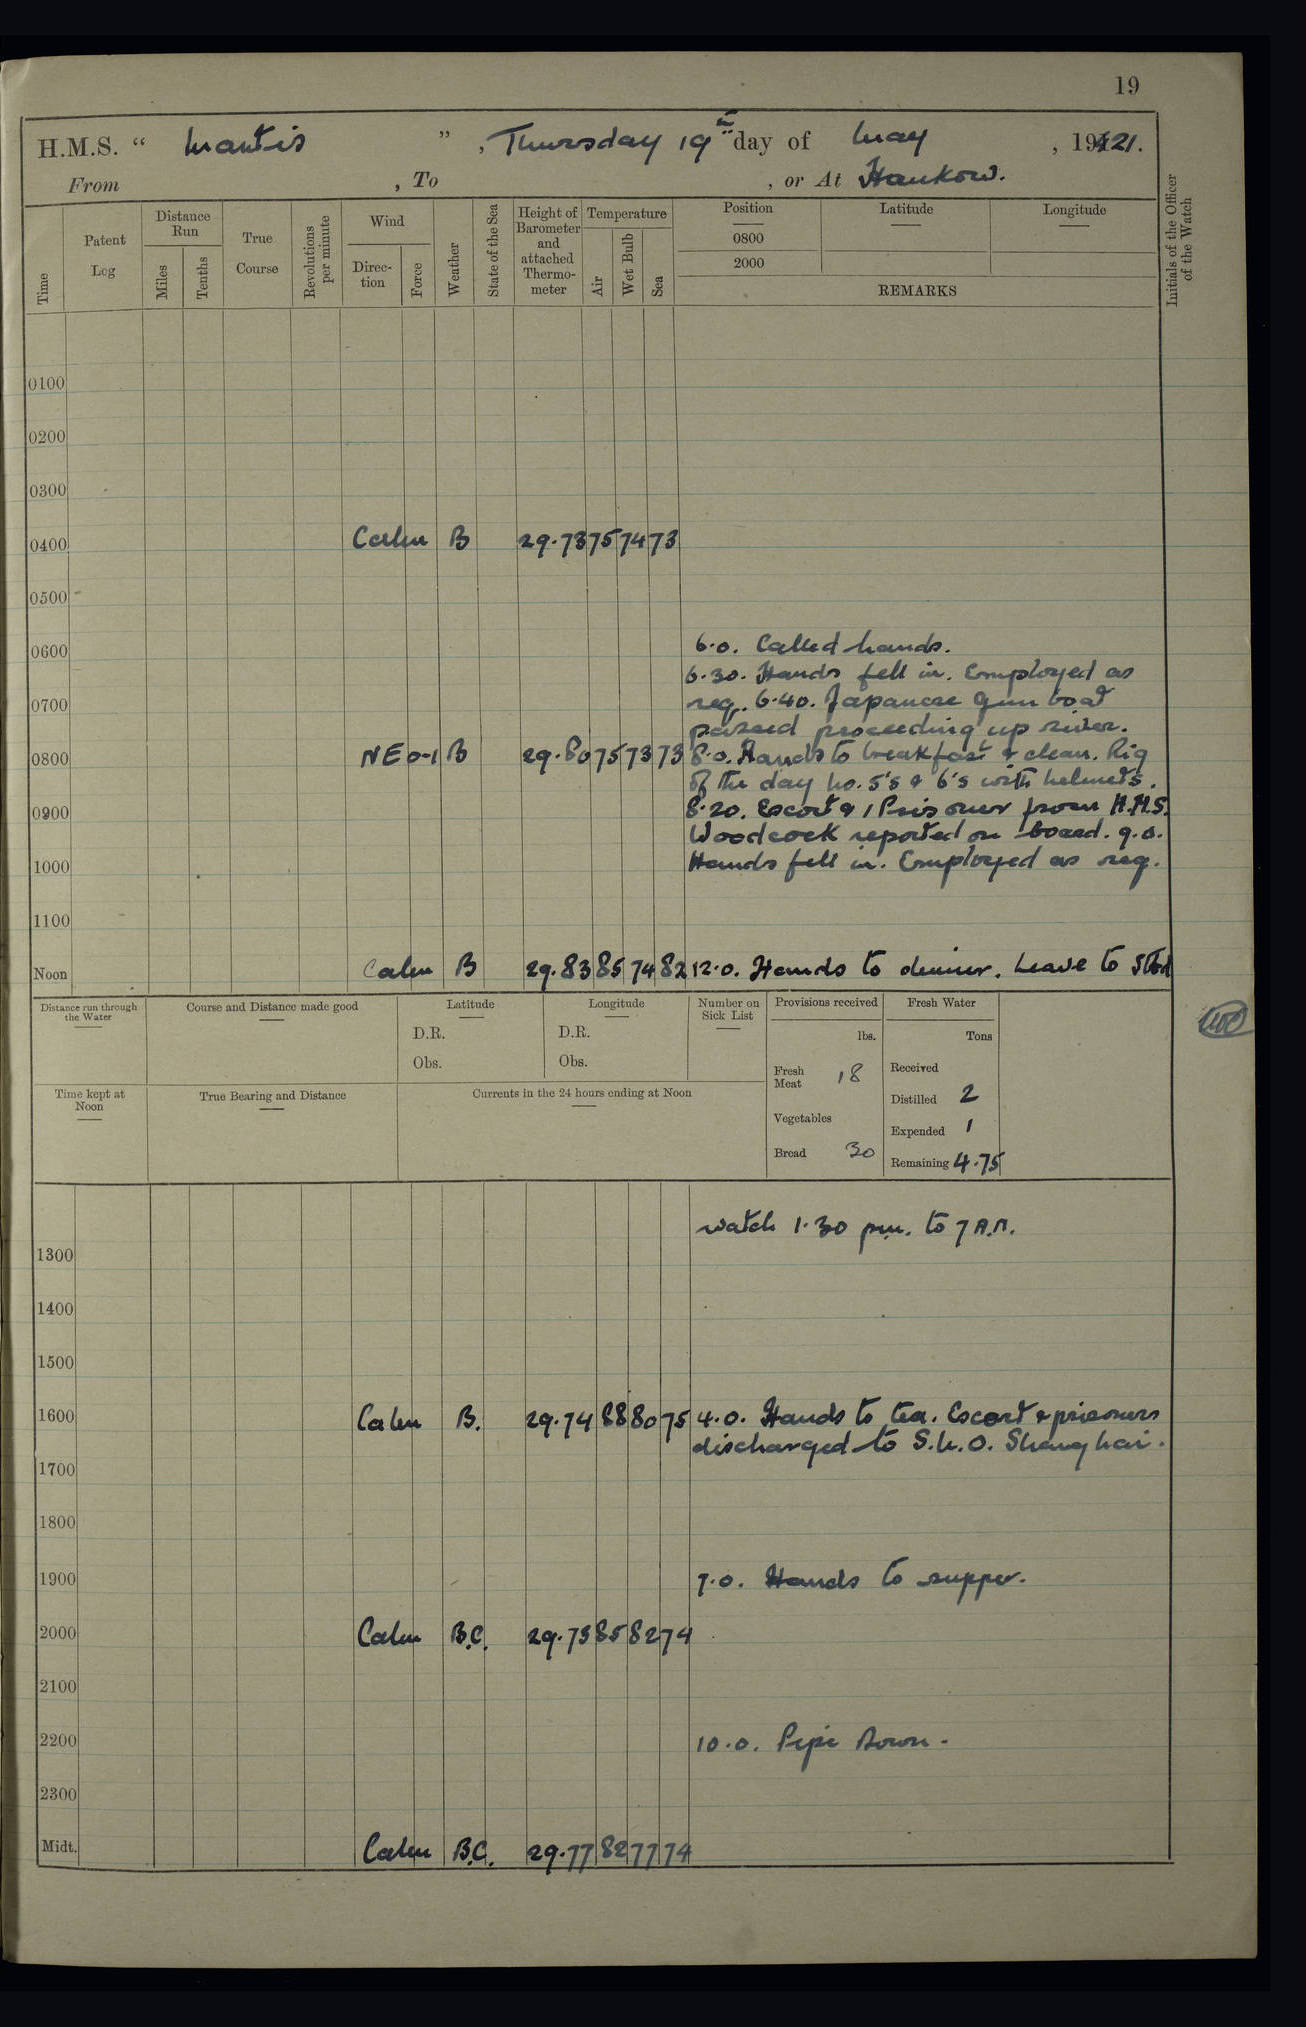 19
H.M.S. “ Mantis ”, Thursday 19th day of May, 1921.
From , To , or At Hankow.
Time
Patent Log
Distance Run
Miles
Tenths
True Course
Revolutions per minute
Wind
Direction
Force
Weather
State of the Sea
Height of Barometer and attached Thermometer
Temperature
Air
Wet Bulb
Sea
Position
0800
2000
Latitude
Longitude
REMARKS
Initials of the Officer of the Watch
0100
0200
0300
0400 Calm B 29.73 75 74 73
0500
0600 6.0. Called hands.
6.30. Hands fell in. Employed as
0700 req. 6.40. Japanese Gun boat
passed proceeding up river.
0800 NE 0-1 B 29.80 75 73 73 8.0. Hands to breakfast & clean. Rig
of the day No. 5's & 6's with helmets.
0900 8.20. Escort & 1 Prisoner from H.M.S.
Woodcock reported on board. 9.0.
1000 Hands fell in. Employed as req.
1100
Noon Calm B 29.83 85 74 82 12.0. Hands to dinner. Leave to Stbd
Distance run through the Water
Course and Distance made good
Latitude
D.R.
Obs.
Longitude
D.R.
Obs.
Number on Sick List
Provisions received
lbs.
Fresh Meat 18
Vegetables
Bread 30
Fresh Water
Tons
Received
Distilled 2
Expended 1
Remaining 4.75
Time kept at Noon
True Bearing and Distance
Currents in the 24 hours ending at Noon
watch 1.30 pm. to 7 A.M.
1300
1400
1500
1600 Calm B. 29.74 88 80 75 4.0. Hands to tea. Escort & prisoners
discharged to S.N.O. Shanghai.
1700
1800
1900 7.0. Hands to supper.
2000 Calm B.C. 29.75 85 82 74
2100
2200 10.0. Pipe Down.
2300
Midt. Calm B.C. 29.77 82 77 74